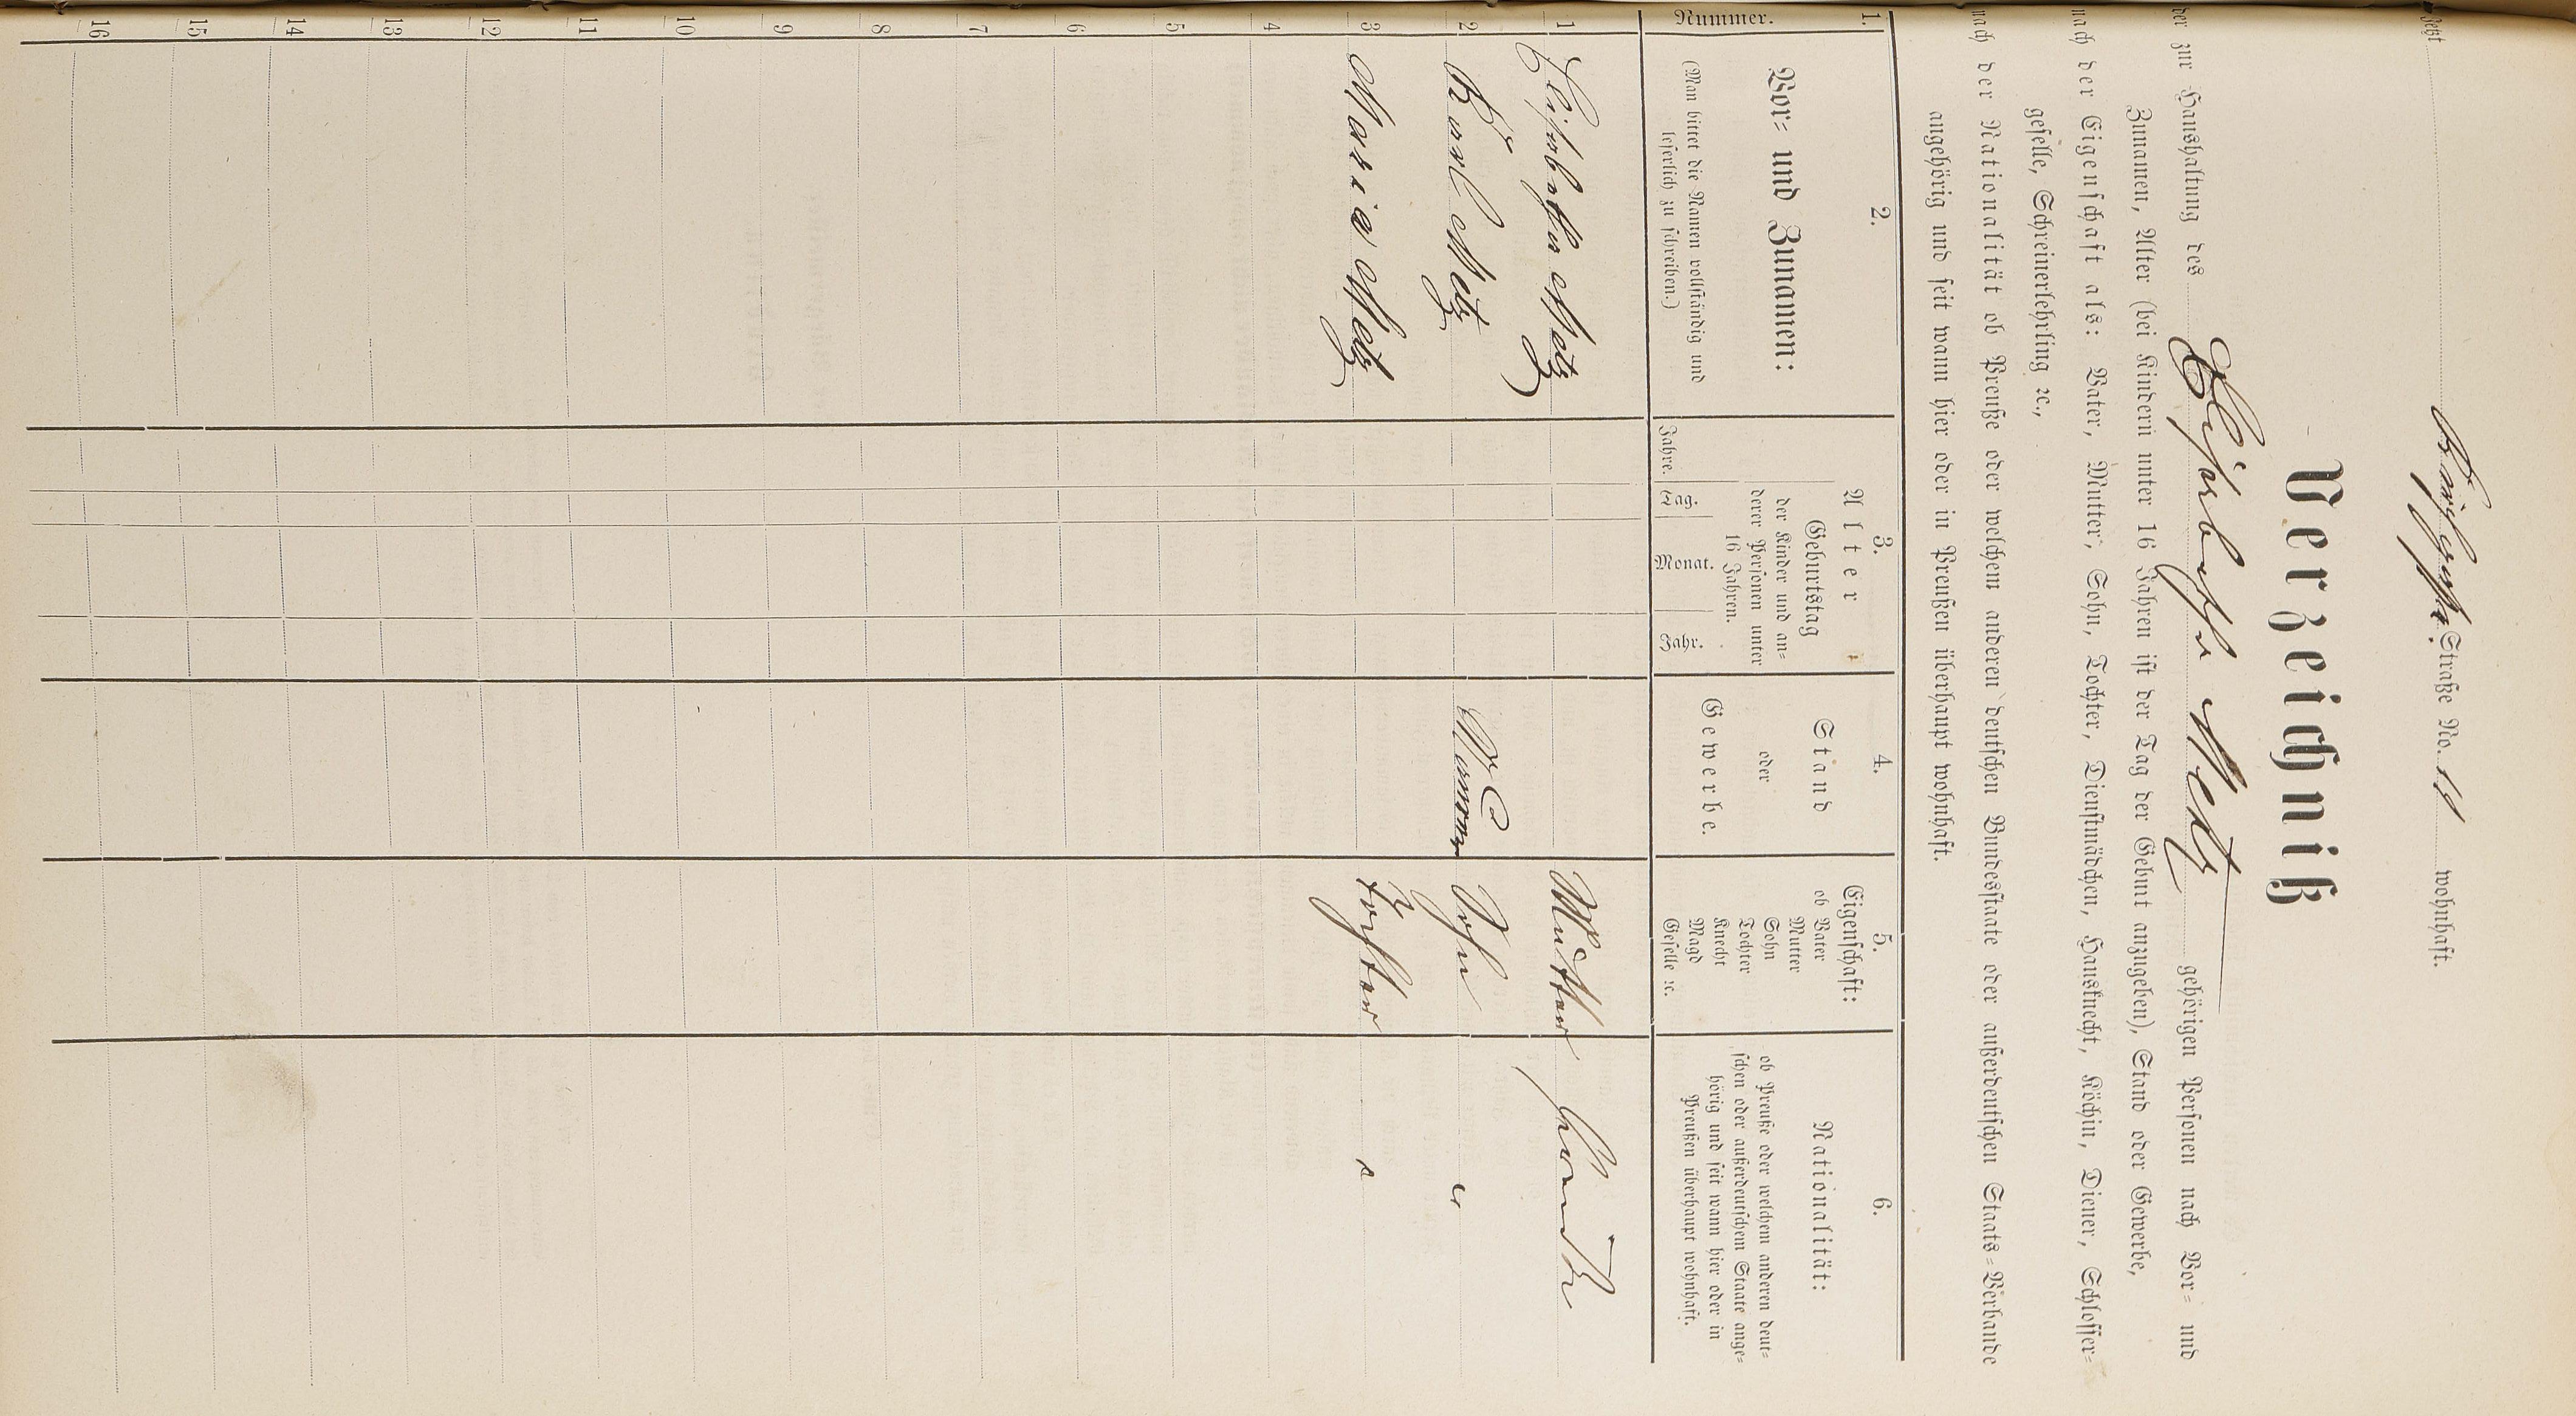 Jetzt Straße No. 11 wohnhaft.
Verzeichniß
der zur Haushaltung des Elisabetha Metz gehörigen Personen nach Vor- und
Zunamen, Alter (bei Kindern unter 16 Jahren ist der Tag der Geburt anzugeben), Stand oder Gewerbe,
nach der Eigenschaft als: Vater, Mutter, Sohn, Tochter, Dienstmädchen, Hausknecht, Köchin, Diener, Schlosser-
geselle, Schreinerlehrling ꝛc.,
nach der Nationalität ob Preuße oder welchem anderen deutschen Bundesstaate oder außerdeutschen Staats-Verbande
angehörig und seit wann hier oder in Preußen überhaupt wohnhaft.
1. 2. 3. 4. 5. 6.
Nummer.
Vor- und Zunamen:
(Man bittet die Namen vollständig und
leserlich zu schreiben.)
Alter
Jahre.
Geburtstag
der Kinder und an-
derer Personen unter
16 Jahren.
Tag. Monat. Jahr.
Stand
oder
Gewerbe.
Eigenschaft:
ob Vater
Mutter
Sohn
Tochter
Knecht
Magd
Geselle ꝛc.
Nationalität:
ob Preuße oder welchem anderen deut-
schen oder außerdeutschem Staate ange-
hörig und seit wann hier oder in
Preußen überhaupt wohnhaft.
1 Elisabetha Metz Mutter
2 Karl Metz Maurer Sohn "
3 Maria Metz Tochter "
4
5
6
7
8
9
10
11
12
13
14
15
16